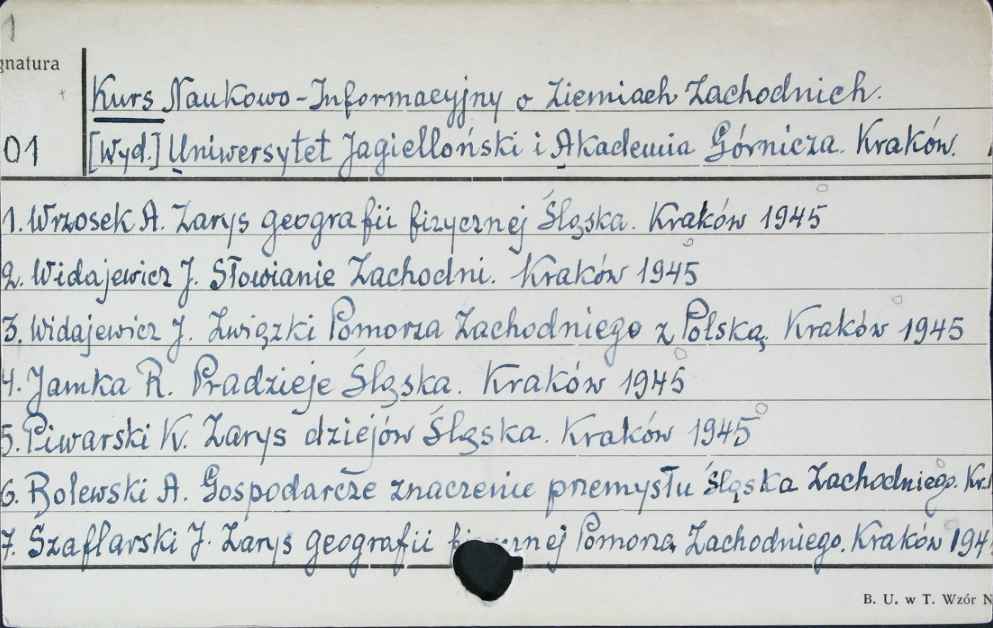 1
gnatura
Kurs Naukowo-Informacyjny o Ziemiach Zachodnich.
01 [Wyd.] Uniwersytet Jagielloński i Akademia Górnicza. Kraków.
1. Wrzosek A. Zarys geografii fizycznej Śląska. Kraków 1945
2. Widajewicz J. Słowianie Zachodni. Kraków 1945
3. Widajewicz J. Związki Pomorza Zachodniego z Polską. Kraków 1945
4. Jamka R. Pradzieje Śląska. Kraków 1945
5. Piwarski K. Zarys dziejów Śląska. Kraków 1945
6. Bolewski A. Gospodarcze znaczenie przemysłu Śląska Zachodniego. Kr.
7. Szaflarski J. Zarys geografii Pomorza Zachodniego. Kraków 194
B. U. w T. Wzór N